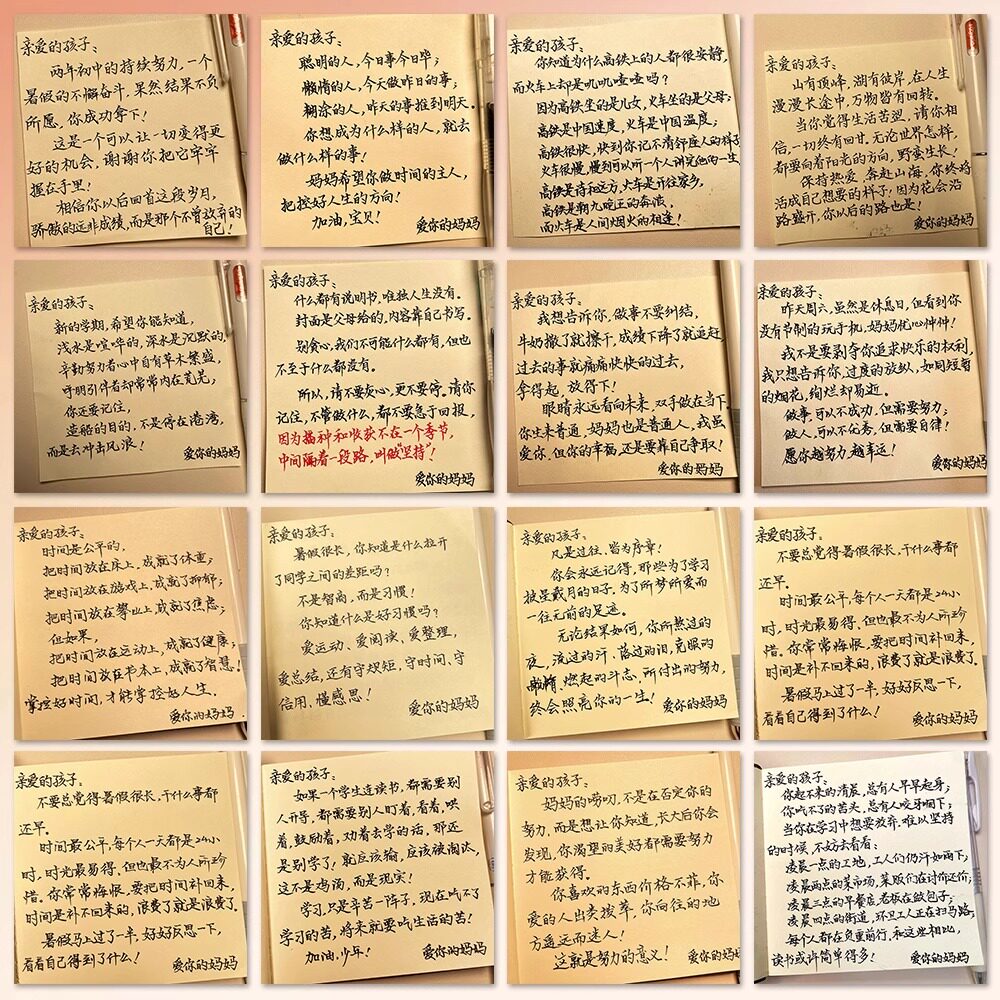 亲爱的孩子：
两年初中的持续努力，一个
暑假的不懈奋斗，果然结果不负
所愿，你成功拿下！
这是一个可以让一切变得更
好的机会，谢谢你把它牢牢
握在手里！
相信你以后回首这段岁月，
骄傲的远非成绩，而是那个不曾放弃的
自己！
亲爱的孩子：
聪明的人，今日事今日毕；
懒惰的人，今天做昨日的事；
糊涂的人，昨天的事推到明天。
你想成为什么样的人，就去
做什么样的事！
妈妈希望你做时间的主人，
把控好人生的方向！
加油，宝贝！
爱你的妈妈
亲爱的孩子：
你知道为什么高铁上的人都很安静，
而火车上却是叽叽喳喳吗？
因为高铁坐的是儿女，火车坐的是父母；
高铁是中国速度，火车是中国温度；
高铁很快，快到你记不清邻座人的样子，
火车很慢，慢到可以听一个人讲完他的一生
高铁是诗和远方，火车是开往家乡，
高铁是朝九晚五的奔波，
而火车是人间烟火的相逢！
亲爱的孩子：
山有顶峰，湖有彼岸，在人生
漫漫长途中，万物皆有回转。
当你觉得生活苦涩，请你相
信，一切终有回甘，无论世界怎样，
都要向着阳光的方向，野蛮生长！
保持热爱，奔赴山海，你终将
活成自己想要的样子！因为花会沿
路盛开，你以后的路也是！
爱你的妈妈
亲爱的孩子：
新的学期，希望你能知道，
浅水是喧哗的，深水是沉默的。
辛勤努力者心中自有草木繁盛，
呼朋引伴者却常常内在荒芜，
你还要记住，
造船的目的，不是停在港湾，
而是去冲击风浪！
爱你的妈妈
亲爱的孩子：
什么都有说明书，唯独人生没有。
封面是父母给的，内容靠自己书写。
别贪心，我们不可能什么都有，但也
不至于什么都没有。
所以，请不要灰心，更不要停。请你
记住，不管做什么，都不要急于回报，
因为播种和收获不在一个季节，
中间隔着一段路，叫做“坚持”！
爱你的妈妈
亲爱的孩子：
我想告诉你，做事不要纠结，
牛奶撒了就擦干，成绩下降了就追赶，
过去的事就痛痛快快的过去，
拿得起，放得下！
眼睛永远看向未来，双手做在当下。
你生来普通，妈妈也是普通人，我虽
爱你，但你的幸福，还是要靠自己争取！
爱你的妈妈
亲爱的孩子：
昨天周六，虽然是休息日，但看到你
没有节制的玩手机，妈妈忧心忡忡！
我不是要剥夺你追求快乐的权利，
我只想告诉你，过度的放纵，如同短暂
的烟花，绚烂却易逝。
做事，可以不成功，但需要努力；
做人，可以不优秀，但需要自律！
愿你越努力，越幸运！
爱你的妈妈
亲爱的孩子：
时间是公平的，
把时间放在床上，成就了体重；
把时间放在游戏上，成就了抑郁；
把时间放在攀比上，成就了焦虑；
但如果，
把时间放在运动上，成就了健康；
把时间放在书本上，成就了智慧！
掌控好时间，才能掌控好人生。
爱你的妈妈
亲爱的孩子：
暑假很长，你知道是什么拉开
了同学之间的差距吗？
不是智商，而是习惯！
你知道什么是好习惯吗？
爱运动、爱阅读、爱整理，
爱总结，还有守规矩、守时间、守
信用，懂感恩！
爱你的妈妈
亲爱的孩子：
凡是过往，皆为序章！
你会永远记得，那些为了学习
披星戴月的日子，为了所梦所爱而
一往无前的足迹。
无论结果如何，你所熬过的
夜，流过的汗，落过的泪，克服的
懒惰，燃起的斗志，所付出的努力，
终会照亮你的一生！
爱你的妈妈
亲爱的孩子：
不要总觉得暑假很长，干什么事都
还早。
时间最公平，每个人一天都是24小
时，时光最易得，但也最不为人所珍
惜。你常常悔恨，要把时间补回来，
时间是补不回来的，浪费了就是浪费了。
暑假马上过了一半，好好反思一下，
看看自己得到了什么！
爱你的妈妈
亲爱的孩子：
不要总觉得暑假很长，干什么事都
还早。
时间最公平，每个人一天都是24小
时，时光最易得，但也最不为人所珍
惜。你常常悔恨，要把时间补回来，
时间是补不回来的，浪费了就是浪费了。
暑假马上过了一半，好好反思一下，
看看自己得到了什么！
爱你的妈妈
亲爱的孩子：
如果一个学生连读书，都需要别
人开导，都需要别人盯着，看着，哄
着，鼓励着，劝着去学的话，那还
是别学了！就应该输，应该被淘汰，
这不是鸡汤，而是现实！
学习，只是辛苦一阵子，现在吃不了
学习的苦，将来就要吃生活的苦！
加油，少年！
爱你的妈妈
亲爱的孩子：
妈妈的唠叨，不是在否定你的
努力，而是想让你知道，长大后你会
发现，你渴望的美好都需要努力
才能获得。
你喜欢的东西价格不菲，你
爱的人出类拔萃，你向往的地
方遥远而迷人！
这就是努力的意义！
爱你的妈妈
亲爱的孩子：
你起不来的清晨，总有人早早起身；
你吃不了的苦头，总有人咬牙咽下；
当你在学习中想要放弃，难以坚持
的时候，不妨去看看：
凌晨一点的工地，工人们仍汗如雨下；
凌晨两点的菜市场，菜贩们在讨价还价；
凌晨三点的早餐店，老板在做包子；
凌晨四点的街道，环卫工人正在扫马路；
每个人都在负重前行，和这些相比，
读书或许简单得多！
爱你的妈妈